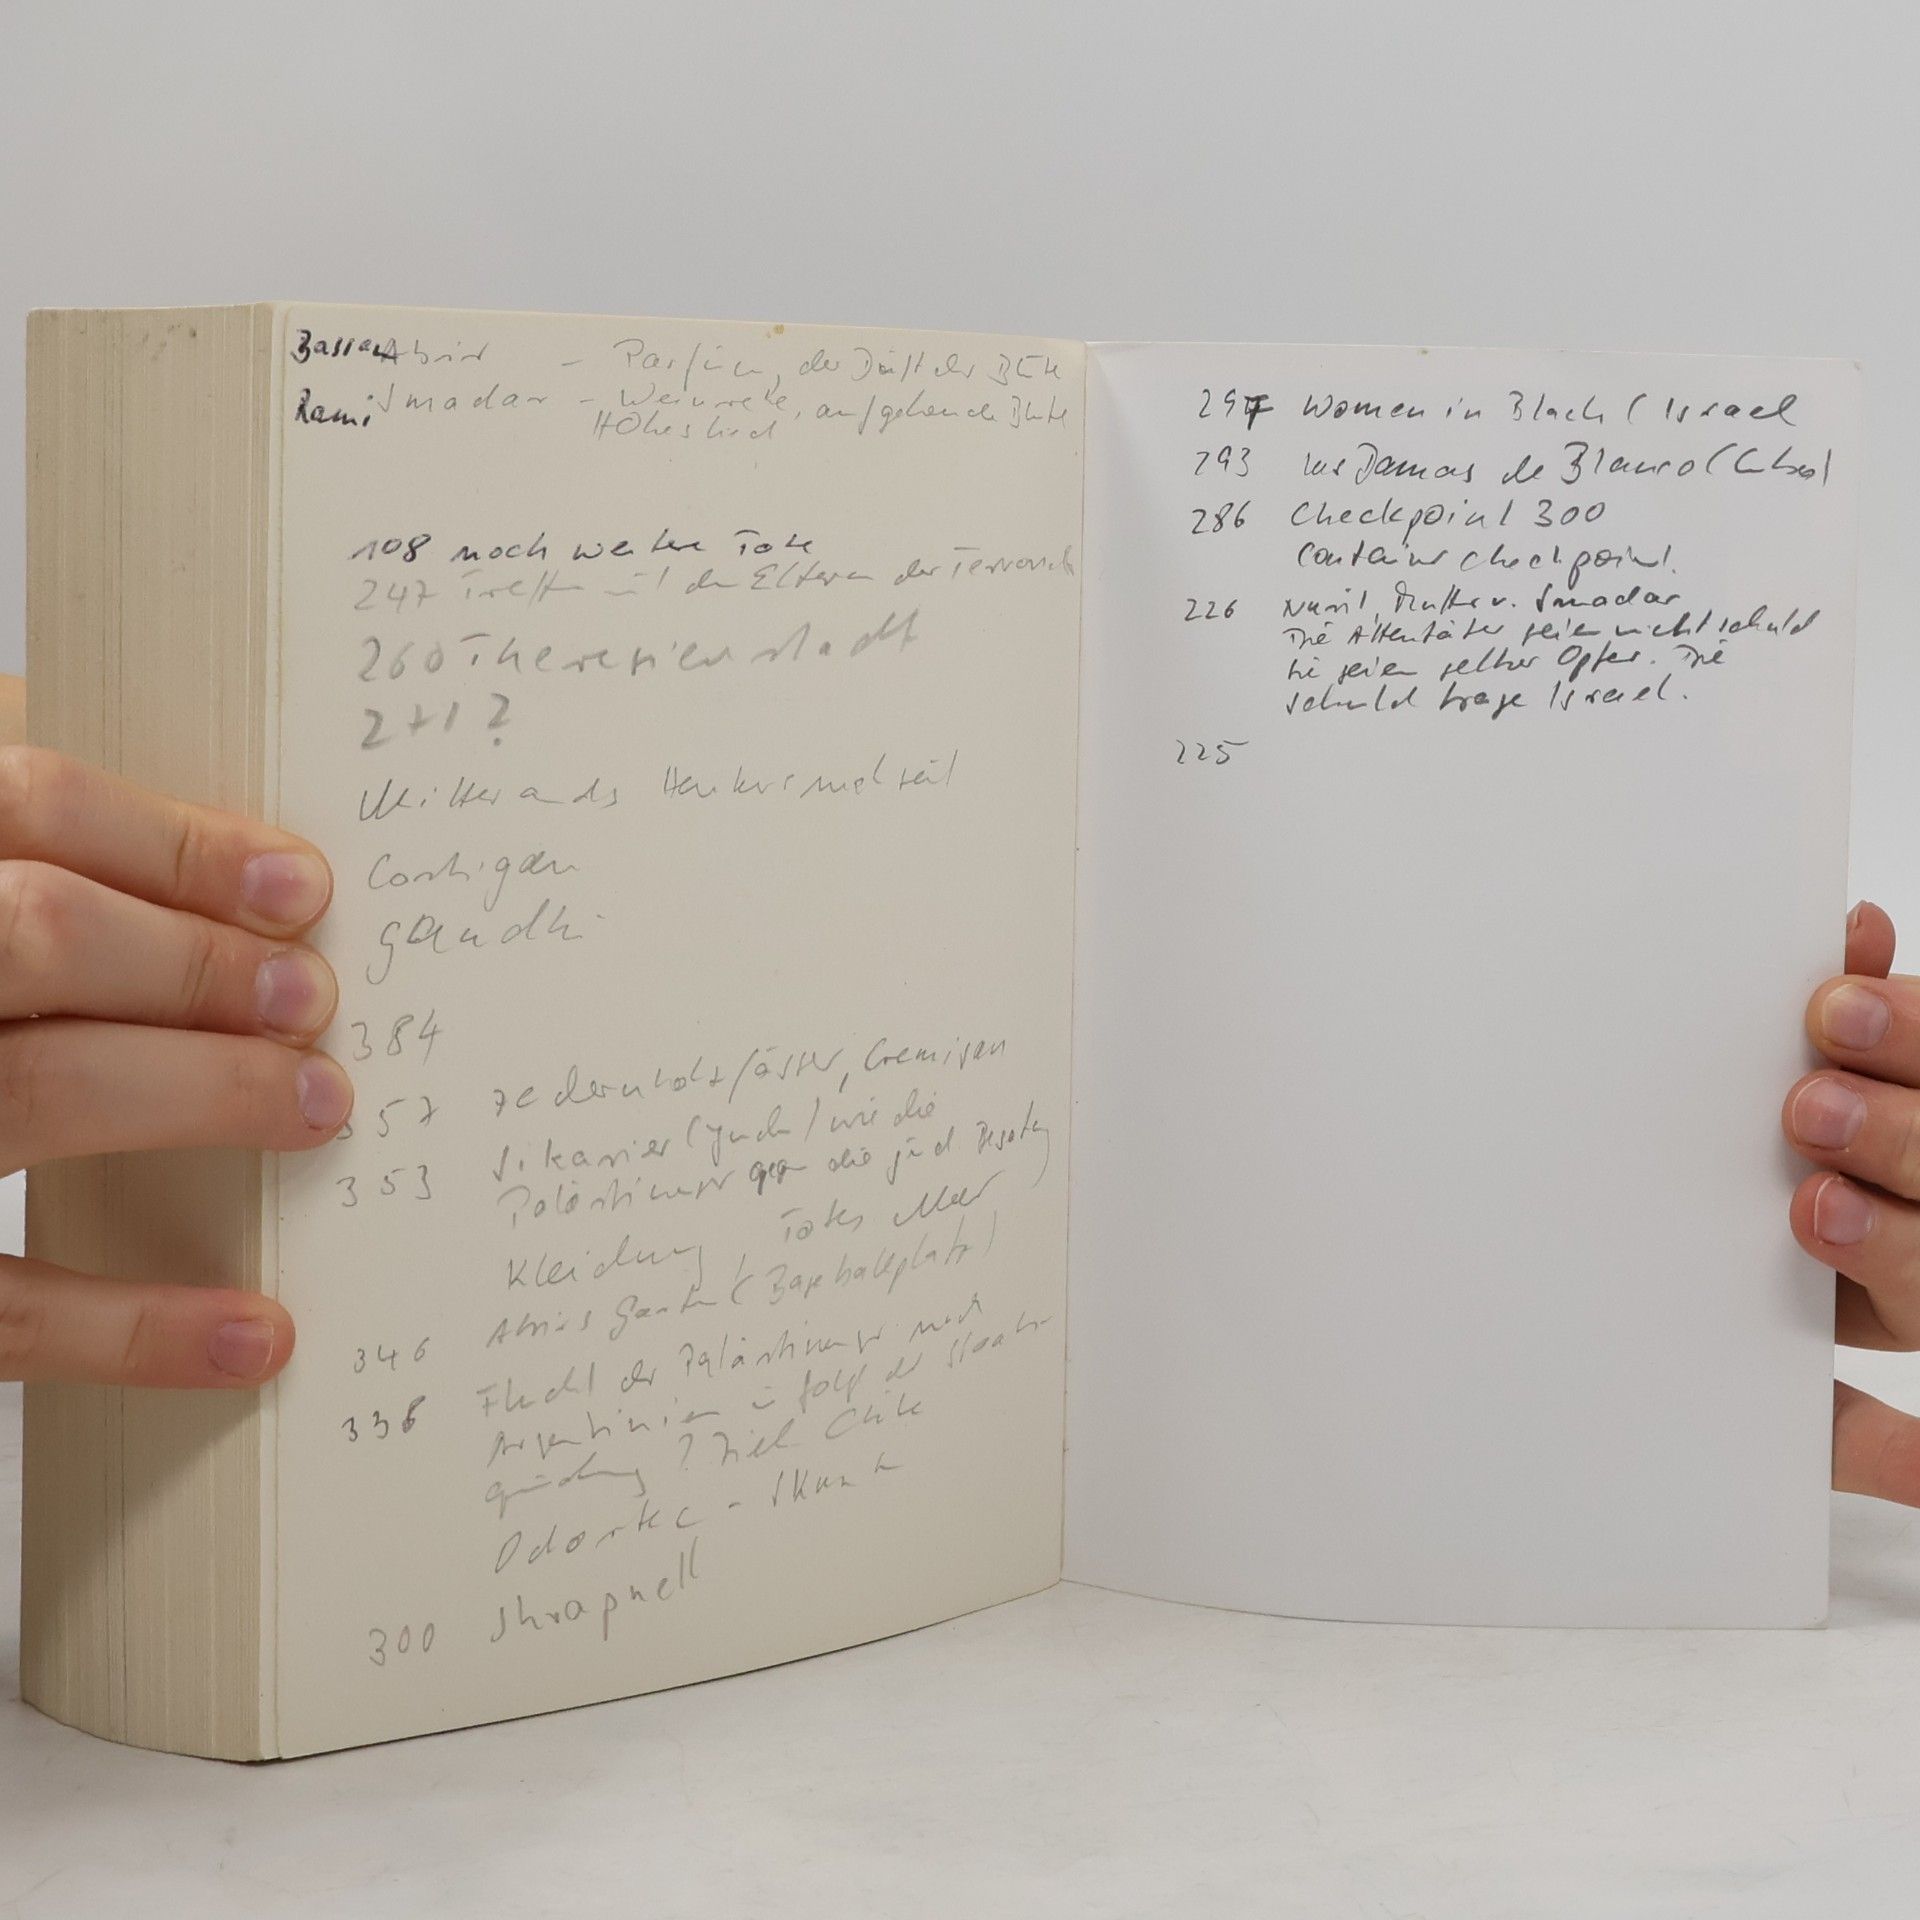 Bassam Abir – Parfüm, der Duft der Blüte
Rami Smadar – Weinrebe, aufgehende Blüte
Hohes Lied
108 noch weitere Tote
247 Treffen mit den Eltern der Terroristen
260 Theresienstadt
2+1?
Mitterands Henkersmahlzeit
Costigan
Gandhi
384
357 Zedernholzfässer, Cremisan
353 Sikarier (Juden) wie die
Palästinenser gegen die jüd Besatzung
Kleidung, Totes Meer
346 Abirs Garten (Baseballplatz)
338 Flucht der Palästinenser nach
Argentinien in Folge der Staats-
gründung? Ziel Chile
Odortec – Skunk
300 Shrapnell
297 Women in Black (Israel
293 las Damas de Blanco (Cuba)
286 Checkpoint 300
Container checkpoint.
226 Nurit, Mutter v. Smadar
Die Attentäter seien nicht schuld
sie seien selber Opfer. Die
Schuld trage Israel.
225